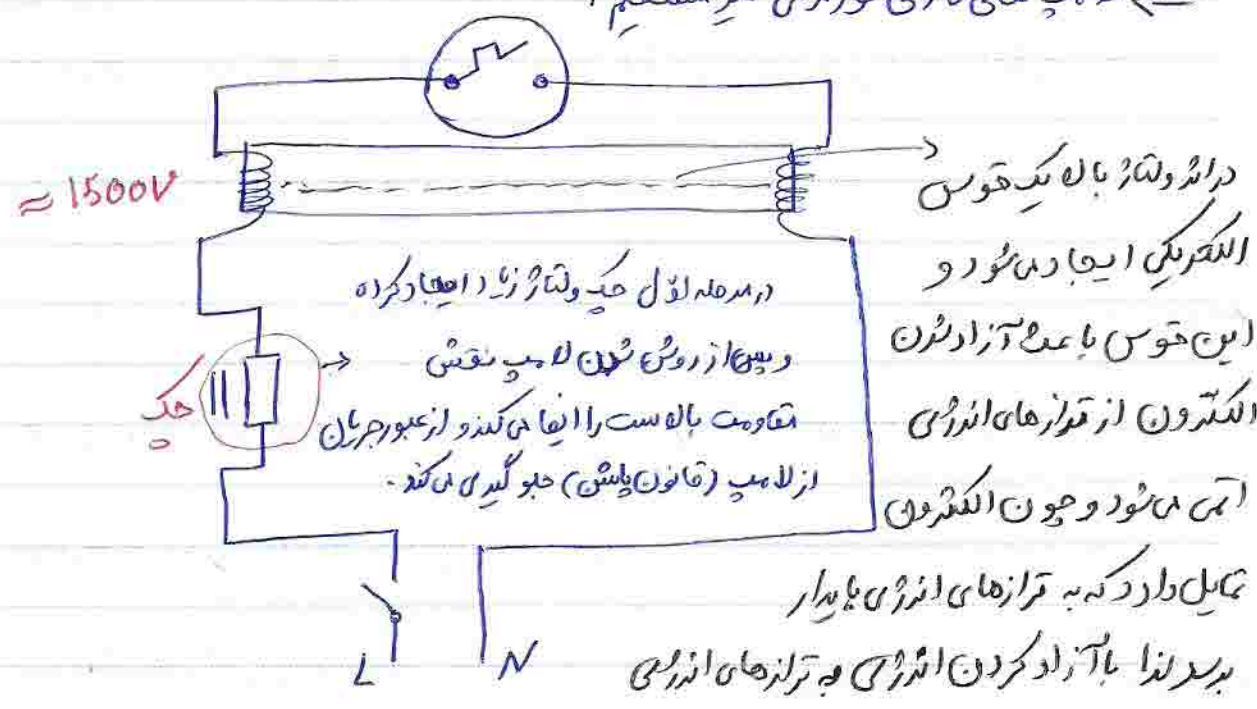 لامپ های گازی فلورسنس غیر مستقیم :
≈ 1500V
چک
در مرحله اوّل چک ولتاژ زیاد ایجاد کرده
و پس از روشن شدن لامپ نقش
مقاومت بالاست را ایفا می کند و از عبور جریان
از لامپ (قانون پاشن) جلو گیری می کند.
در اثر ولتاژ بالا یک قوس
الکتریکی ایجاد می شود و
این قوس باعث آزاد شدن
الکترون از ترازهای انرژی
اتمی می شود و چون الکترون
تمایل دارد که به ترازهای انرژی پایدار
برسد لذا با آزاد کردن انرژی به ترازهای انرژی
L N